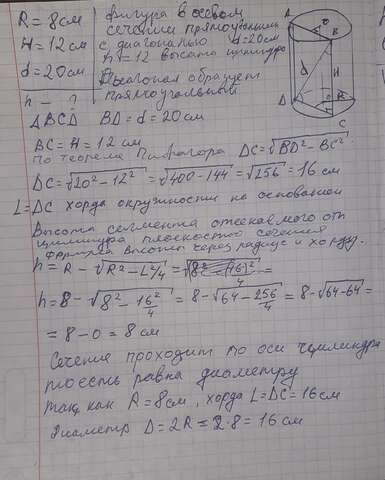 R = 8см
H = 12 см
d = 20 см
h - ?
фигура в осевом
сечении прямоугольник
с диагональю d=20см
h = 12 высота цилиндра
Диагональ образует
прямоугольный
A
B
d
H
R
D
C
ABCD BD = d = 20см
BC = H = 12 см
По теорема Пифагора DC = √BD² - BC²
DC = √20² - 12² = √400 - 144 = √256 = 16 см
L = DC хорда окружности на основании
Высота сегмента отсекаемого от
цилиндра плоскостью сечения
формула высоты через радиус и хорду.
h = R - √R² - L²/4 =
h = 8 - √8² - 16²/4 = 8 - √64 - 256/4 = 8 - √64 - 64 =
= 8 - 0 = 8 см
Сечение проходит по оси цилиндра
тоесть равна диаметру
так как R = 8см, хорда L = DC = 16см
Диаметр D = 2R = 2·8 = 16 см